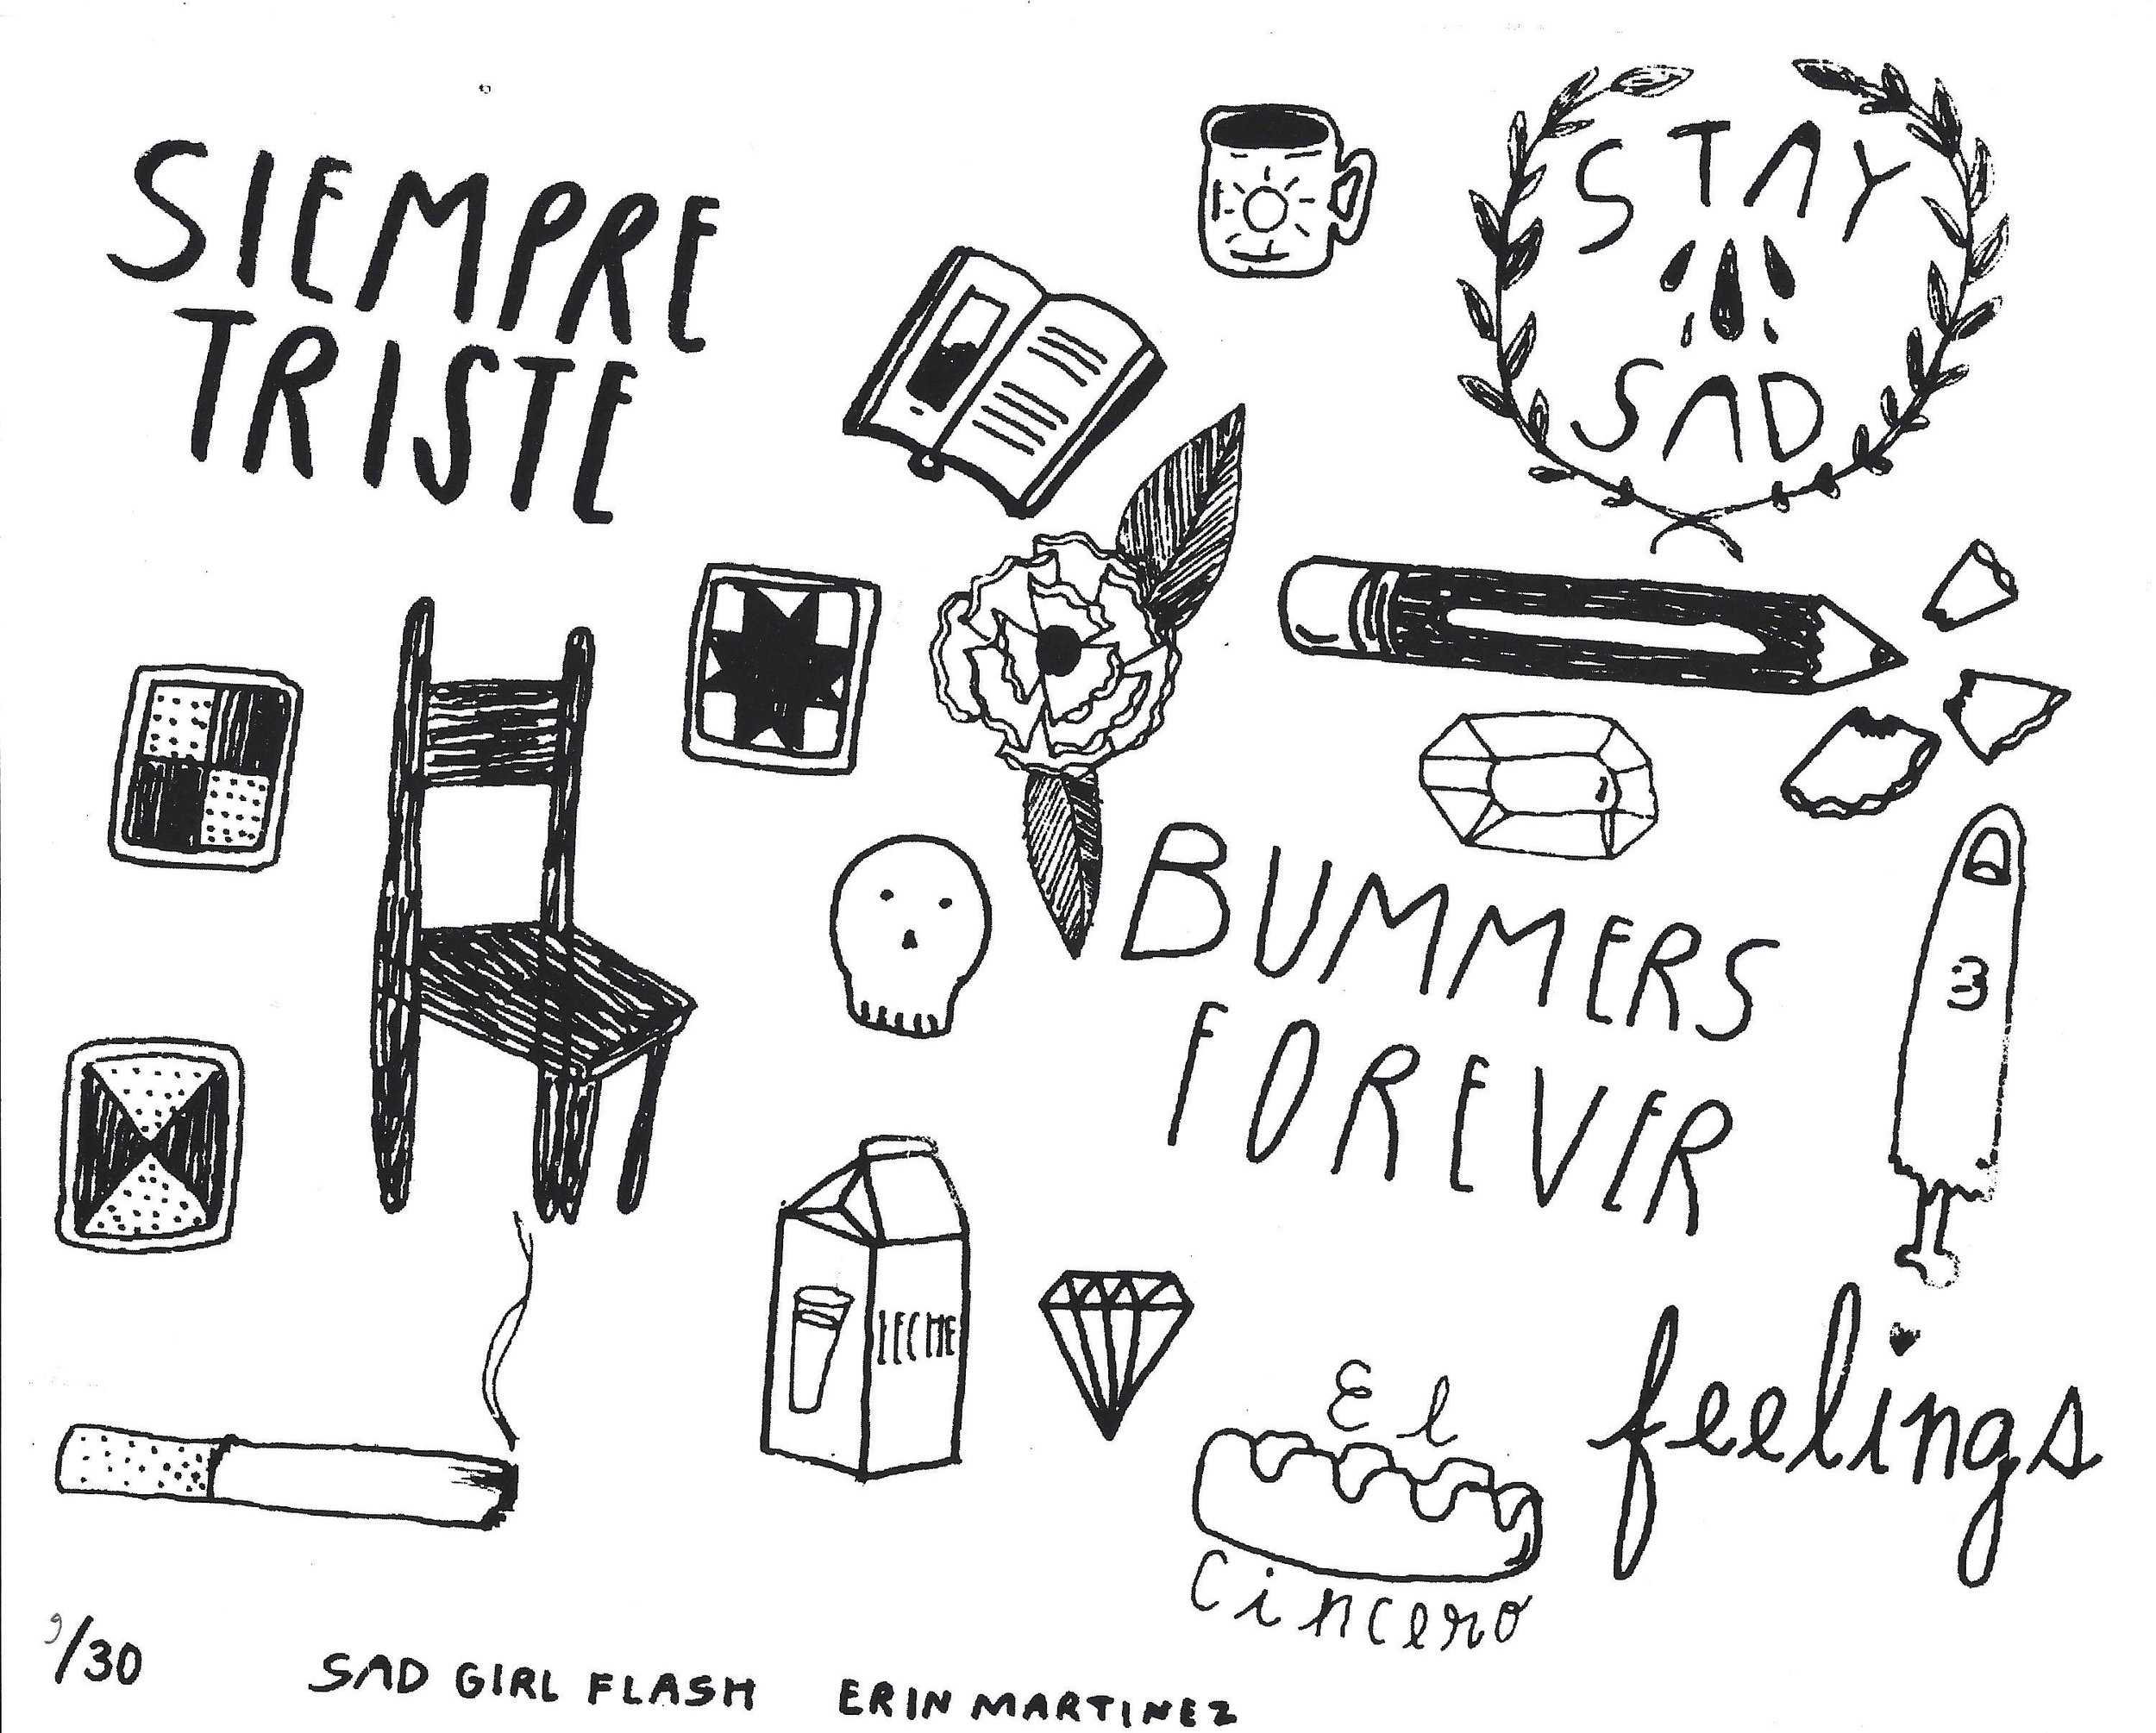 SIEMPRE
TRISTE
STAY
SAD
BUMMERS
FOREVER
LECHE
El
Cincero
feelings
9/30
SAD GIRL FLASH ERIN MARTINEZ